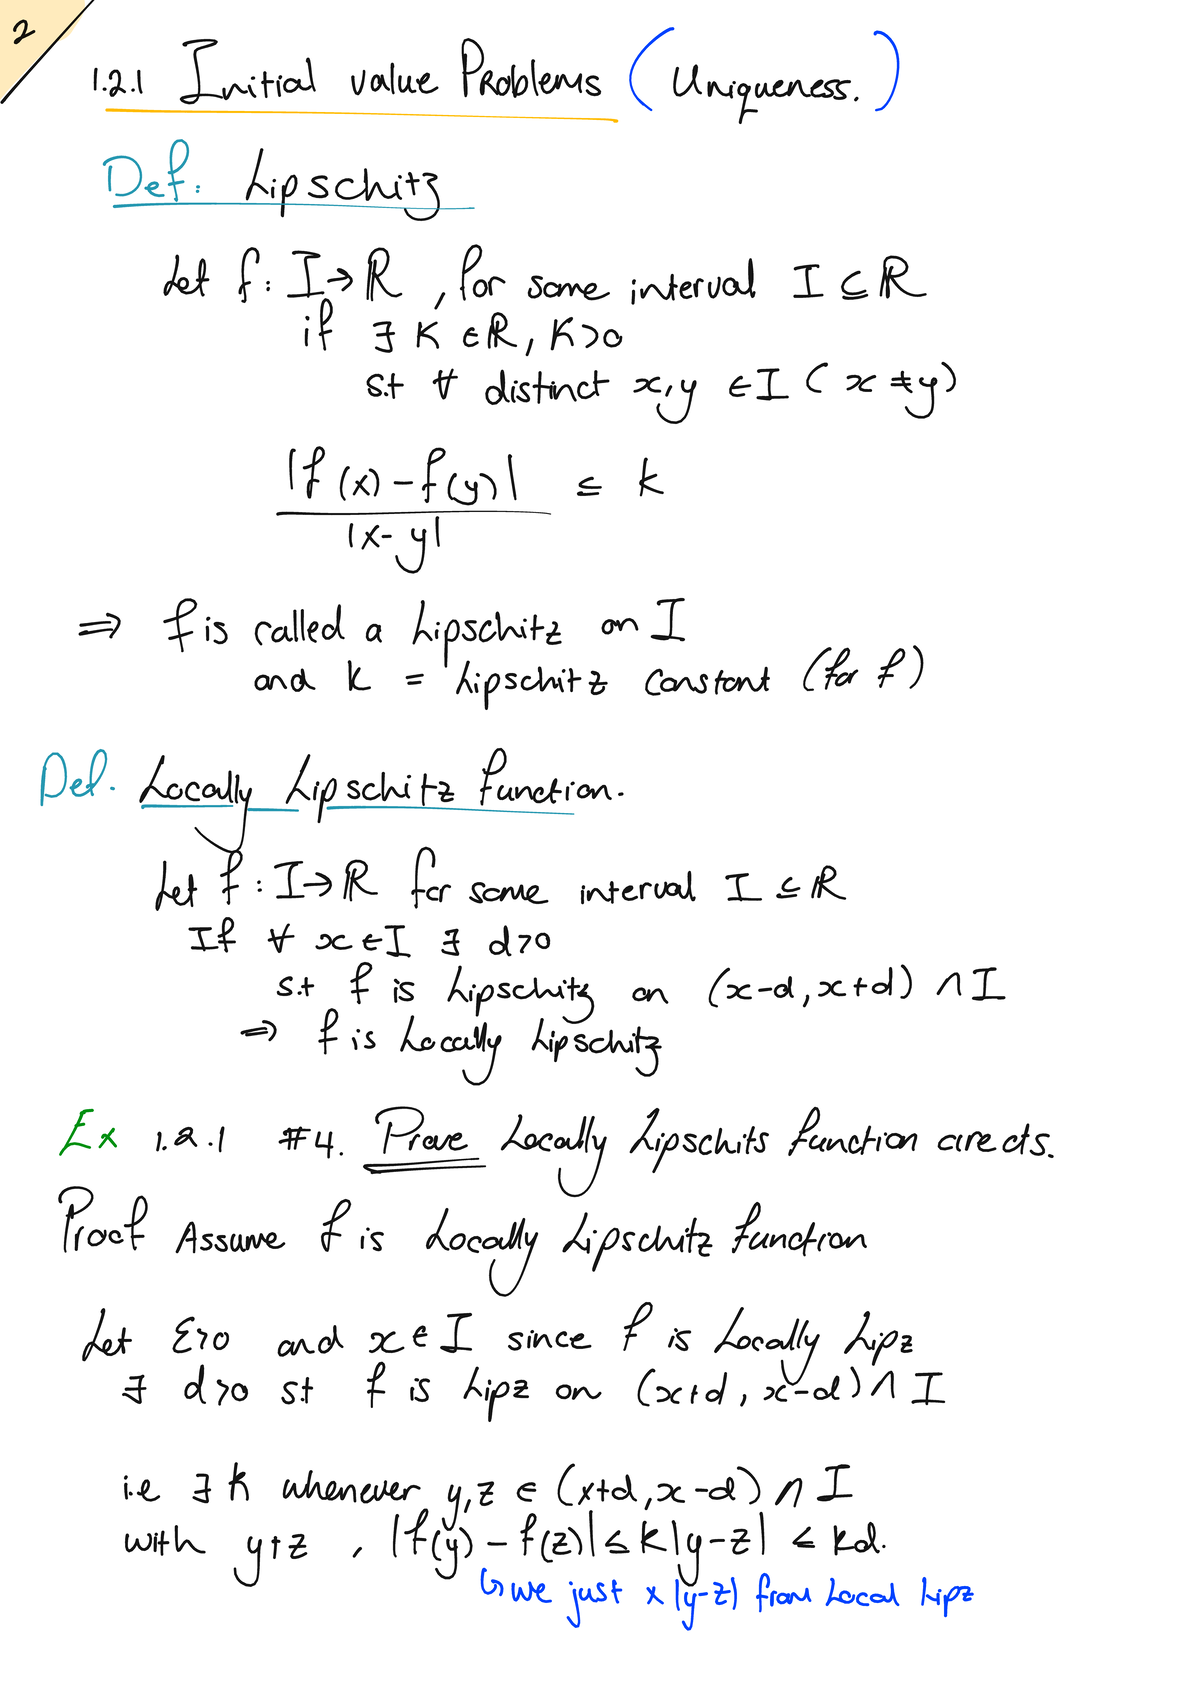 2
1.2.1 Initial value Problems (Uniqueness.)
Def: Lipschitz
Let f: I → ℝ, for some interval I ⊆ ℝ
if ∃ K ∈ ℝ, K>0
s.t ∀ distinct x,y ∈ I (x ≠ y)
|f(x) - f(y)| ≤ k
|x-y|
⇒ f is called a Lipschitz on I
and k = Lipschitz constant (for f)
Def. Locally Lipschitz function.
Let f: I → ℝ for some interval I ⊆ ℝ
If ∀ x ∈ I ∃ d>0
s.t f is Lipschitz on (x-d, x+d) ∩ I
⇒ f is Locally Lipschitz
Ex 1.2.1 #4. Prove Locally Lipschits function are cts.
Proof Assume f is Locally Lipschitz function
Let ε>0 and x ∈ I since f is Locally Lipz
∃ d>0 st f is Lipz on (x+d, x-d) ∩ I
i.e ∃ k whenever y,z ∈ (x+d, x-d) ∩ I
with y≠z, |f(y) - f(z)| ≤ k|y-z| ≤ kd.
↳ we just x |y-z| from Local Lipz